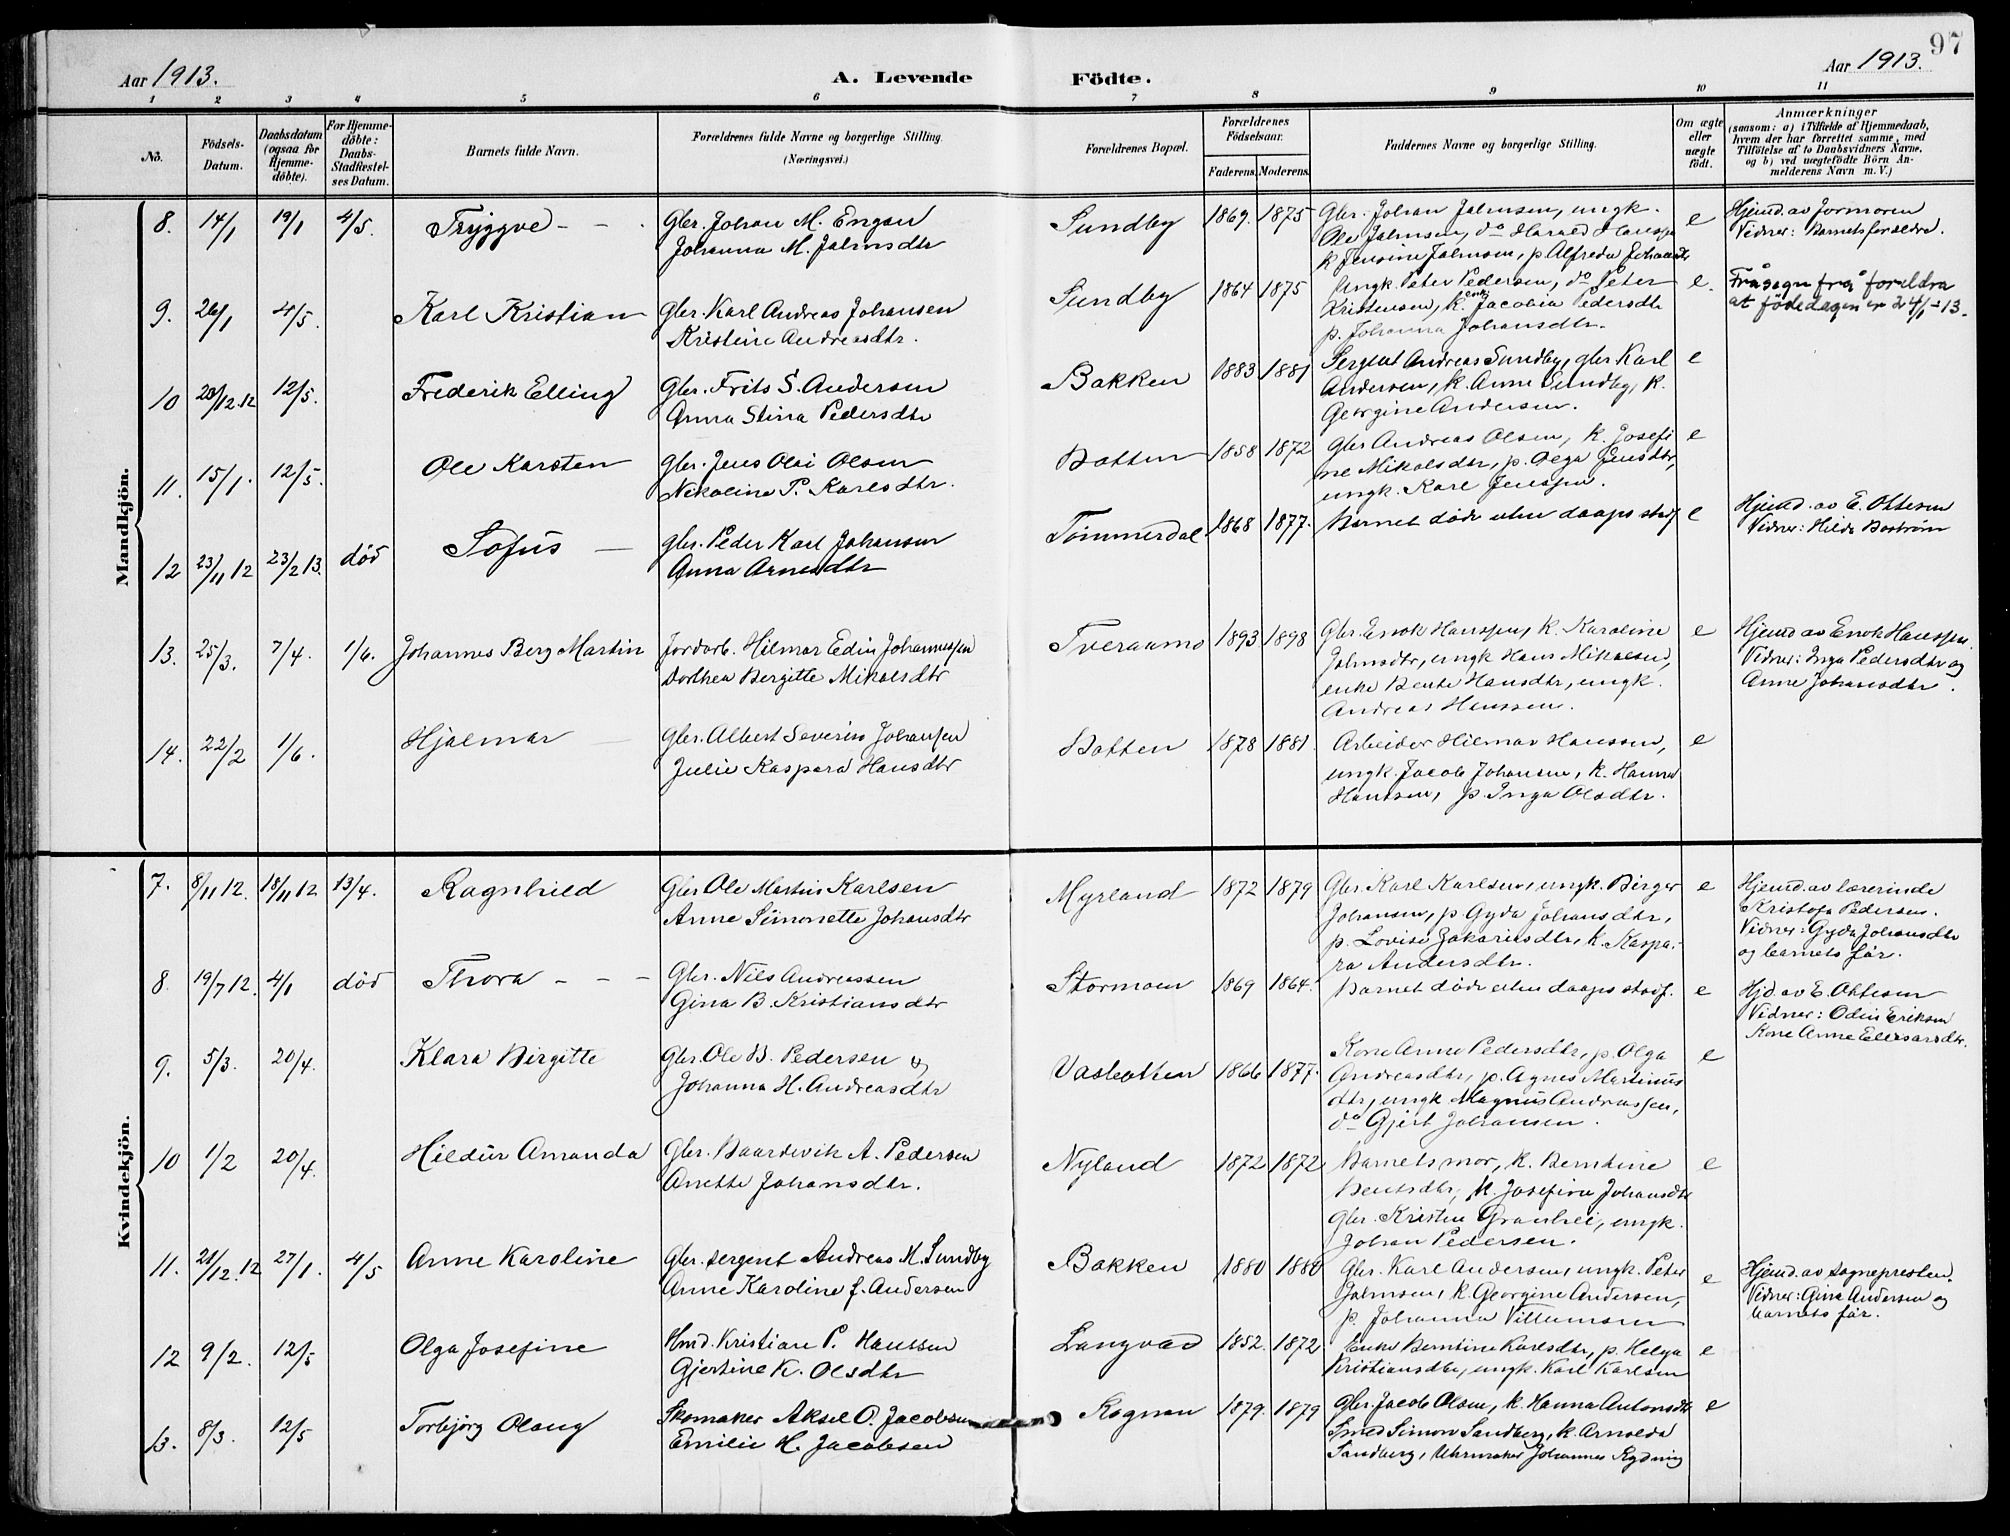 97
Aar 1913.
A. Levende Födte.
Aar 1913.
1 2 3 4 5 6 7 8 9 10 11
No.
Födsels-
Datum.
Daabsdatum
(ogsaa for
Hjemme-
döbte).
For Hjemme-
döbte:
Daabs-
Stadfæstel-
ses Datum.
Barnets fulde Navn.
Forældrenes fulde Navne og borgerlige Stilling.
(Næringsvei.)
Forældrenes Bopæl.
Forældrenes
Födselsaar.
Faderens. Moderens.
Faddernes Navne og borgerlige Stilling.
Om ægte
eller
uægte
födt.
Anmærkninger
(saasom: a) i Tilfælde af Hjemmedaab,
hvem der har forrettet samme, med
Tilföielse af to Daabsvidners Navne,
og b) ved uægtefödte Börn An-
melderens Navn m. V.)
Mandkjön.
8. 14/1 19/1 4/5. Tryggve - - . Gbr. Johan M. Engan
Johanna M. Jalmsdtr
Sundby 1869. 1875 Gbr. Johan Jalmsen, ungk.
Ole Jalmsen, do Harald Hanssen
k Jensine Jalmsen, p. Alfreda Johansdtr
e Hjemd. av Jormoren
Vidner: Barnets foreldre.
9. 26/1 4/5. Karl Kristian Gbr. Karl Andreas Johansen
Kristine Andreasdtr.
Sundby 1864 1875 Ungk. Peter Pedersen, do Peter
Kristensen, k. Jacobia Pedersdtr
p. Johanna Johansdtr.
e. Fråsegn frå foreldra
at fødedagen er 24/1-13.
10 28/12.12 12/5. Frederik Elling Gbr. Frits S. Andersen
Anna Stina Pedersdtr
Bakken 1883 1881 Sergent Andreas Sundby, gbr Karl
Andersen, k. Anne Sundby, k.
Georgine Andersen.
e
11. 15/1. 12/5. Ole Karsten Gbr. Jens Olai Olsen
Nikoline P. Karlsdtr.
Botten 1858 1872 Gbr Andreas Olsen, k. Josefi
ne Mikalsdtr, p. Olga Jensdtr,
ungk. Karl Jenssen.
e
12 23/11 12 23/2 13. død Sofus - gbr. Peder Karl Johansen
Anna Arnesdtr
Tømmerdal 1868 1877. Barnet døde uten daaps stadf e Hjemd. av E. Ottesen
Vidner: Hilda Bostrøm
13. 25/3. 7/4. 1/6. Johannes Berg Martin Jordarb. Hilmar Edin Johannessen
Dorthea Bergitte Mikalsdtr
Tveraamo 1893 1898 Gbr. Enok Hanssen, k. Karoline
Jalmsdtr, ungk Hans Mikalsen,
enke Bente Hansdtr, ungk.
Andreas Hanssen.
e Hjemd av Enok Hanssen.
Vidner: Inga Pedersdtr og
Anne Johansdtr.
14. 22/2 1/6. Hjalmar Gbr. Albert Severin Johansen
Julie Kaspara Hansdtr
Botten 1878 1881. Arbeider Hilmar Hanssen,
ungk. Jacob Johansen, k. Hanna
Hanssen, p. Inga Olsdtr.
e
Kvindekjön.
7. 8/11 12. 18/11 12 13/4. Ragnhild Gbr Ole Martin Karlsen
Anne Simonette Johansdtr
Myrland 1872 1879 Gbr. Karl Karlsen, ungk. Birger
Johansen, p. Gyda Johansdtr,
p. Lovise Zakariasdtr, k. Kaspa-
ra Andersdtr.
e Hjemd. av lærerinde
Kristofa Pedersen.
Vidner: Gyda Johansdtr
og barnets far.
8. 19/7 12. 4/1 død Thora - - - Gbr. Nils Andreassen
Gina B. Kristiansdtr
Stormoen 1869 1864. Barnet døde uten daaps stadf. e Hjd. av E. Ottesen
Vidner: Odin Eriksen
Kone Anne Ellevarsdtr.
9. 5/3. 20/4. Klara Birgitte Gbr. Ole B. Pedersen og
Johanna H. Andreasdtr
Vasbotten 1866 1877. Kone Anne Pedersdtr, p. Olga
Andreasdtr, p. Agnes Martinus
dtr, ungk Magnus Andreassen,
do Gjert Johansen.
e
10 1/2 20/4. Hildur Amanda Gbr. Baardevik A. Pedersen
Anette Johansdtr.
Nyland 1872 1872 Barnets mor, k. Berntine
Bentsdtr, k. Josefine Johansdtr
gbr. Kristen Granhei, ungk.
Johan Pedersen.
e
11. 21/12.12 27/1. 4/5 Anne Karoline Gbr. sergent Andreas M. Sundby
Anne Karoline f. Andersen
Bakken 1880 1880 Gbr. Karl Andersen, ungk. Peter
Jalmsen, k. Georgine Andersen,
p. Johanna Villumsen
e Hjemd. av sognepresten.
Vidner: Gina Andersen og
barnets far.
12 9/2. 12/5 Olga Josefine Hmd. Kristian P. Hanssen
Gjertine K. Olsdtr
Langvad 1852. 1872 Enke Berntine Karlsdtr, p. Helga
Kristiansdtr, ungk. Karl Karlsen
e
13. 8/3. 12/5 Torbjørg Olaug Skomaker Aksel O. Jacobsen
Emilie H. Jacobsen
Rognan 1879. 1879 Gbr. Jacob Olsen, k. Hanna Antonsdtr
Smed Simon Sandberg, k. Arnolda
Sandberg, Uhrmaker Johannes Rydning
e